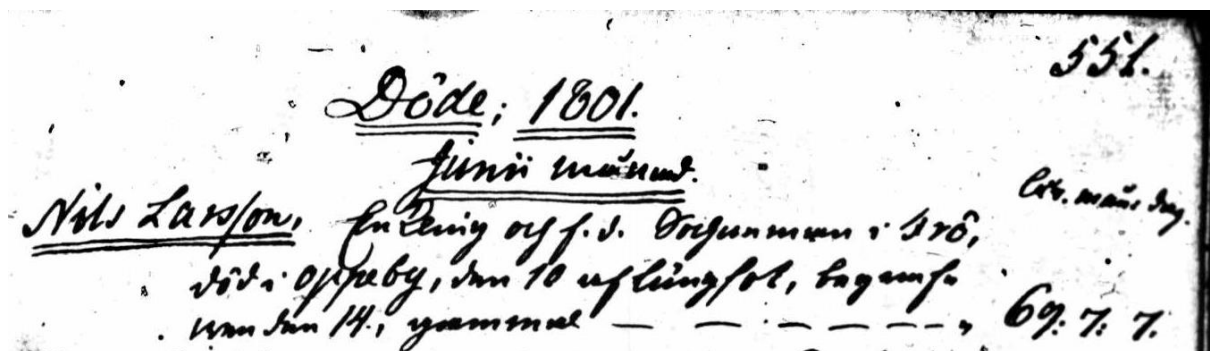 551.
Döde; 1801.
Junii månad.
år. mån. dag.
Nils Larsson, Enkling och f.d. Sockenman i Frö,
död i Oppeby, den 10 af lungsot, begrafs
wen den 14., gammal — — — — — — „ 69: 7: 7.